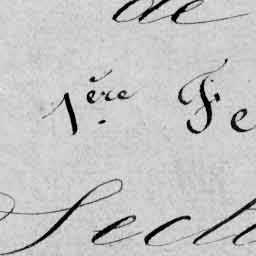 de
1ère Fe
Secti